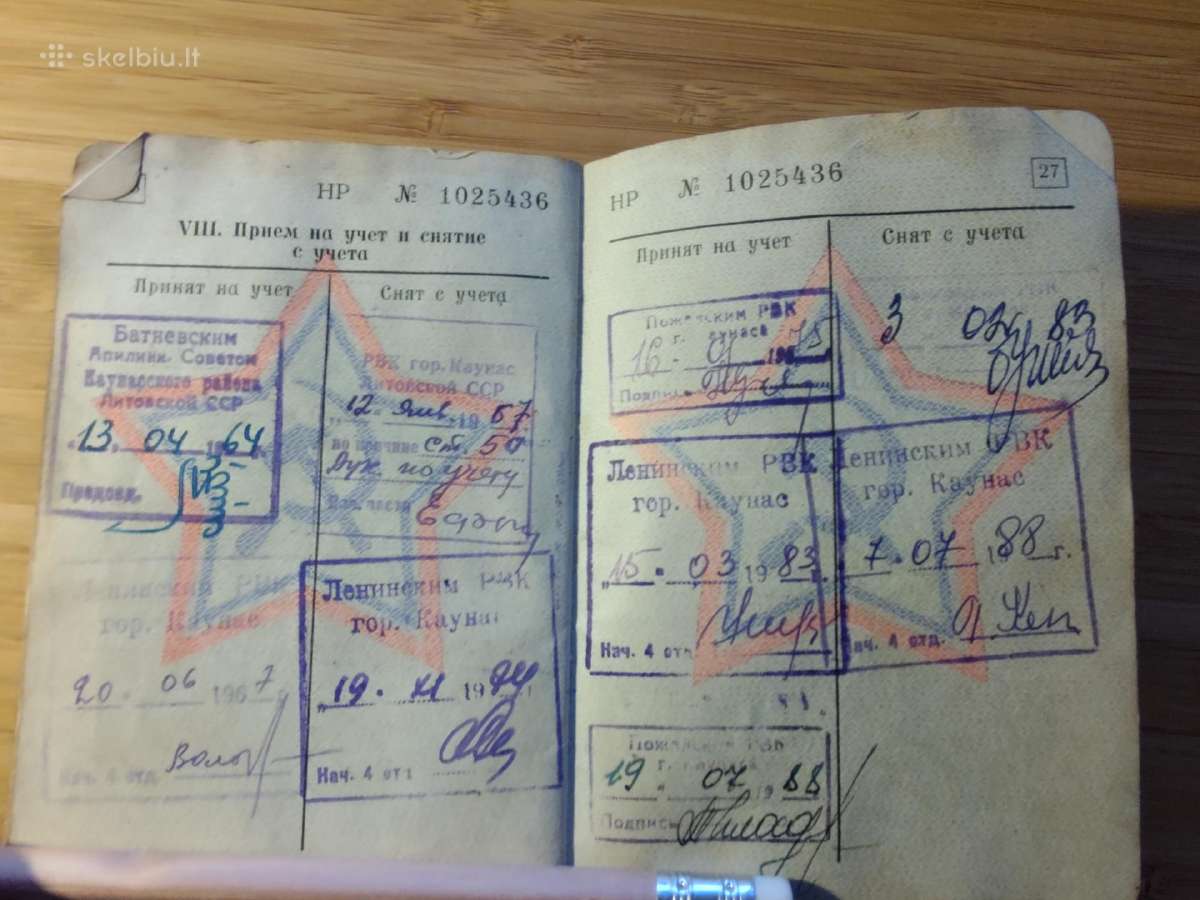 skelbiu.lt
НР № 1025436
VIII. Прием на учет и снятие
с учета
Принят на учет
Снят с учета
Батневским
Апилинк. Советом
Каунасского района
Литовской ССР
"13" 04 1964
Председ.
РВК гор. Каунас
Литовской ССР
12 янв 1967
по причине ст. 50
Рук. по учету
Нач. части
Ленинским РВК
гор. Каунас
20 06 1967 г.
Нач. 4 отд
Ленинским РВК
гор. Каунас
"19" XI 1974
Нач. 4 отд
НР № 1025436
27
Принят на учет
Снят с учета
РВК
г. Каунаса
16
Подпись
3 03 83
Ленинским РВК
гор. Каунас
"15" 03 1983 г.
Нач. 4 отд
Ленинским РВК
гор. Каунас
7 07 1988 г.
Нач. 4 отд.
РВК
г. Каунаса
19 07 1988
Подпись